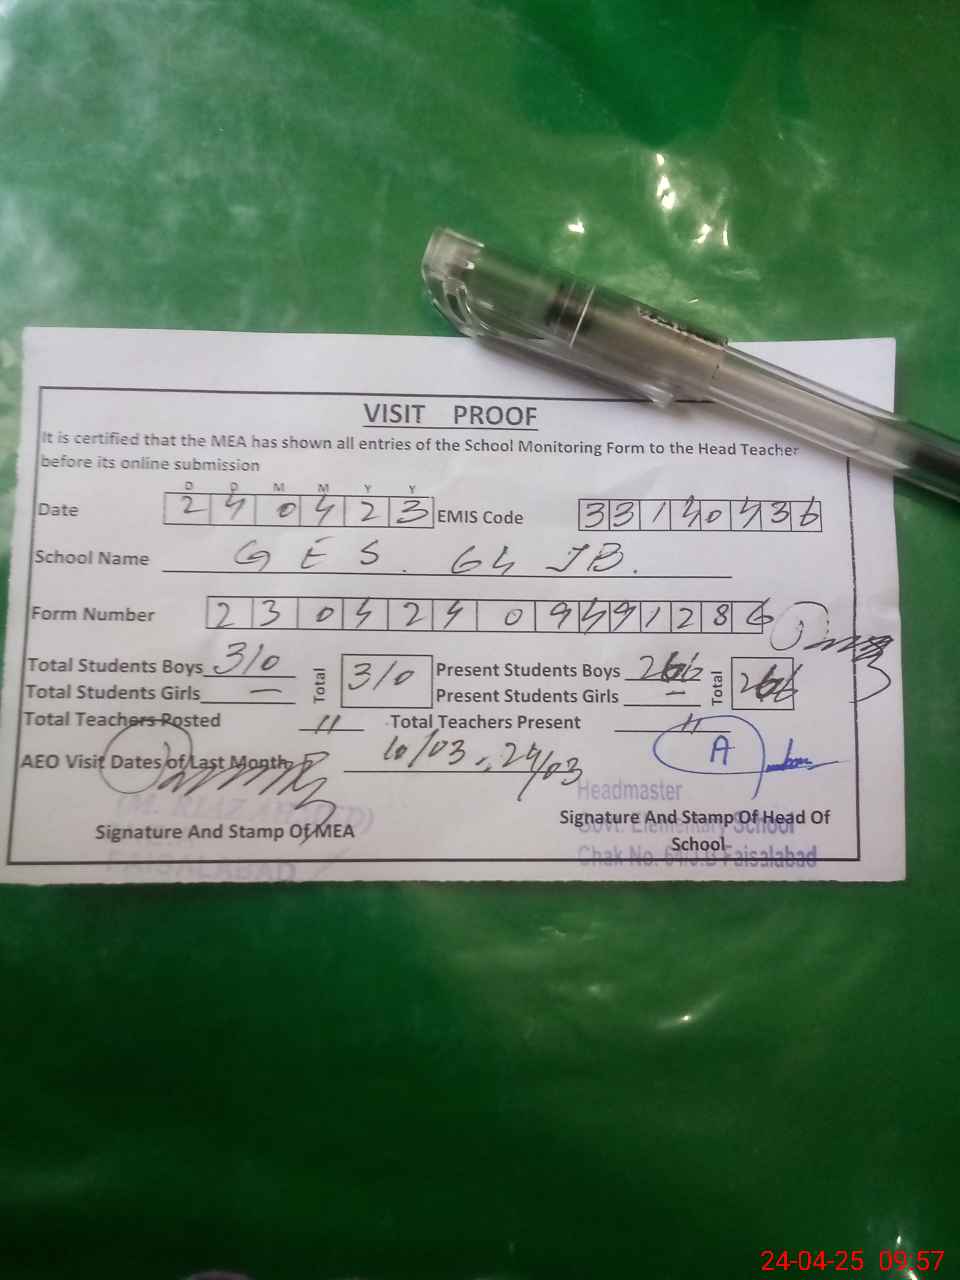 VISIT PROOF
It is certified that the MEA has shown all entries of the School Monitoring Form to the Head Teacher
before its online submission
D D M M Y Y
Date 2 4 0 4 2 3 EMIS Code 3 3 1 4 0 4 3 6
School Name G E S . 64 JB.
Form Number 2 3 0 4 2 4 0 9 4 9 1 2 8 6
Total Students Boys 310 Total 310 Present Students Boys 266 Total 266
Total Students Girls — Present Students Girls —
Total Teachers Posted 11 Total Teachers Present 11
AEO Visit Dates of Last Month 10/03, 24/03
A
Headmaster
Signature And Stamp Of MEA
Signature And Stamp Of Head Of
School
(M. RIAZ AHMED)
FAISALABAD
Govt. Elementary School
Chak No. 64 J.B Faisalabad
24-04-25 09:57